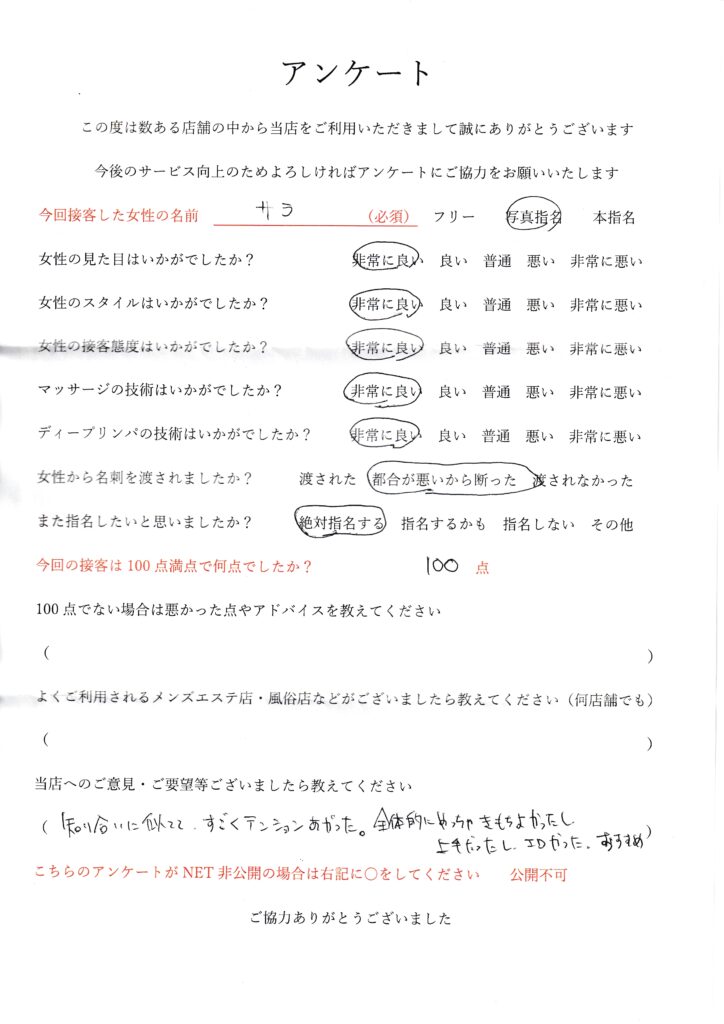 アンケート
この度は数ある店舗の中から当店をご利用いただきまして誠にありがとうございます
今後のサービス向上のためよろしければアンケートにご協力をお願いいたします
今回接客した女性の名前 サラ (必須) フリー 写真指名 本指名
女性の見た目はいかがでしたか? 非常に良い 良い 普通 悪い 非常に悪い
女性のスタイルはいかがでしたか? 非常に良い 良い 普通 悪い 非常に悪い
女性の接客態度はいかがでしたか? 非常に良い 良い 普通 悪い 非常に悪い
マッサージの技術はいかがでしたか? 非常に良い 良い 普通 悪い 非常に悪い
ディープリンパの技術はいかがでしたか? 非常に良い 良い 普通 悪い 非常に悪い
女性から名刺を渡されましたか? 渡された 都合が悪いから断った 渡されなかった
また指名したいと思いましたか? 絶対指名する 指名するかも 指名しない その他
今回の接客は100点満点で何点でしたか? 100 点
100点でない場合は悪かった点やアドバイスを教えてください
( )
よくご利用されるメンズエステ店・風俗店などがございましたら教えてください(何店舗でも)
( )
当店へのご意見・ご要望等ございましたら教えてください
( 知り合いに似てて、すごくテンションあがった。全体的にめっちゃきもちよかったし
上手だったし、 おすすめ)
こちらのアンケートがNET非公開の場合は右記に○をしてください 公開不可
ご協力ありがとうございました